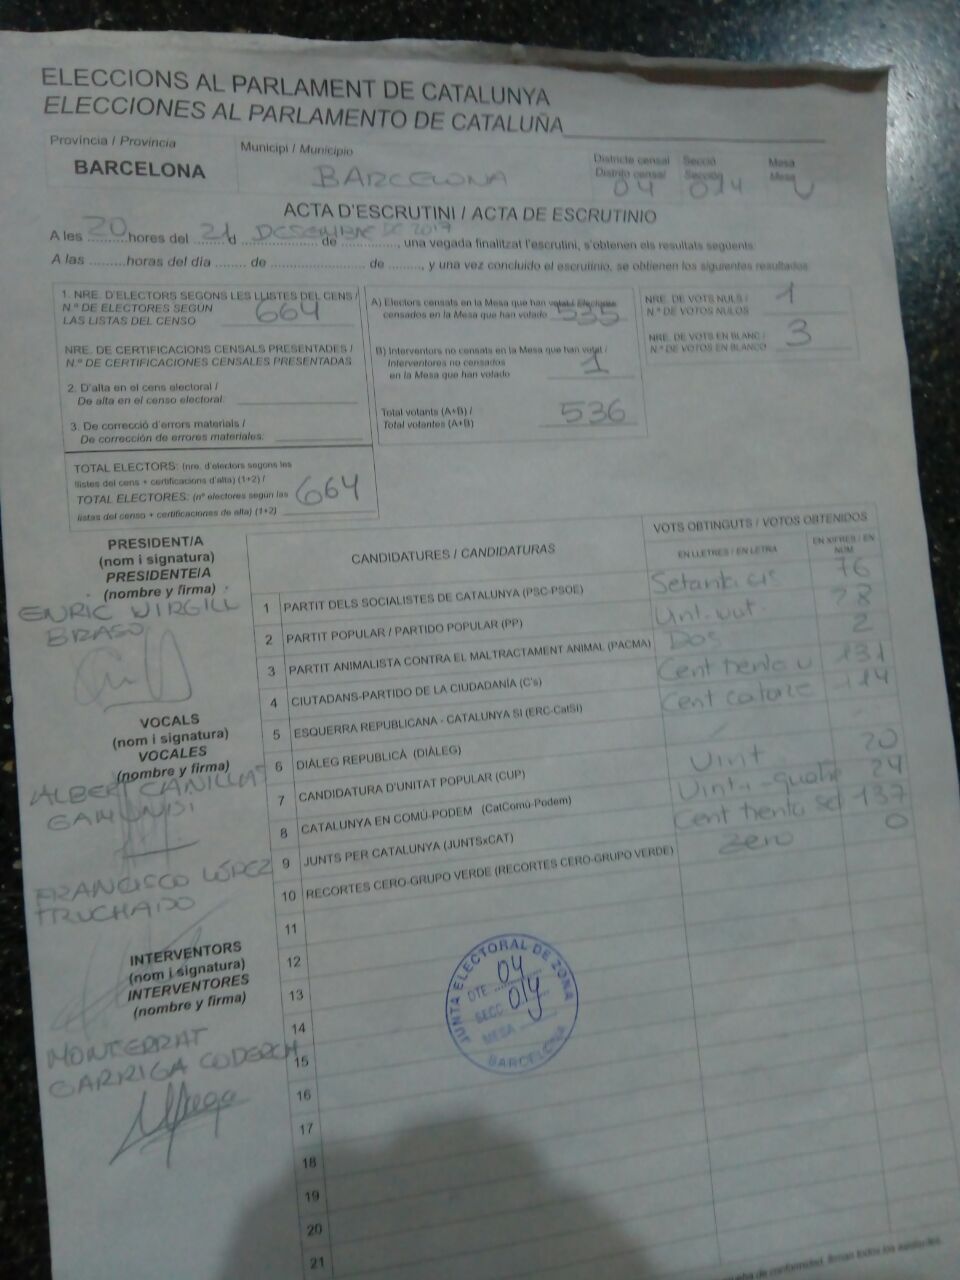 ELECCIONS AL PARLAMENT DE CATALUNYA
ELECCIONES AL PARLAMENTO DE CATALUÑA
Província / Provincia
BARCELONA
Municipi / Municipio
BARCELONA
Districte censal
Distrito censal
04
Secció
Sección
014
Mesa
Mesa
U
ACTA D'ESCRUTINI / ACTA DE ESCRUTINIO
A les 20 hores del 21 d DESEMBRE DE 2017 de ............, una vegada finalitzat l'escrutini, s'obtenen els resultats següents
A las .........horas del día ....... de .......................... de ........, y una vez concluido el escrutinio, se obtienen los siguientes resultados
1. NRE. D'ELECTORS SEGONS LES LLISTES DEL CENS /
N.º DE ELECTORES SEGÚN
LAS LISTAS DEL CENSO 664
NRE. DE CERTIFICACIONS CENSALS PRESENTADES /
N.º DE CERTIFICACIONES CENSALES PRESENTADAS
2. D'alta en el cens electoral /
De alta en el censo electoral:
3. De correcció d'errors materials /
De corrección de errores materiales:
TOTAL ELECTORS: (nre. d'electors segons les
llistes del cens + certificacions d'alta) (1+2) /
TOTAL ELECTORES: (nº electores según las
listas del censo + certificaciones de alta) (1+2)
664
A) Electors censats en la Mesa que han votat / Electores
censados en la Mesa que han votado 535
B) Interventors no censats en la Mesa que han votat /
Interventores no censados
en la Mesa que han votado 1
Total votants (A+B) /
Total votantes (A+B) 536
NRE. DE VOTS NULS /
N.º DE VOTOS NULOS 1
NRE. DE VOTS EN BLANC /
N.º DE VOTOS EN BLANCO 3
PRESIDENT/A
(nom i signatura)
PRESIDENTE/A
(nombre y firma)
ENRIC VIRGILI
BRASO
VOCALS
(nom i signatura)
VOCALES
(nombre y firma)
ALBERT CANILLAS
FRANCISCO LÓPEZ
TRUCHADO
INTERVENTORS
(nom i signatura)
INTERVENTORES
(nombre y firma)
MONTERRAT
GARRIGA CODERCH
CANDIDATURES / CANDIDATURAS
VOTS OBTINGUTS / VOTOS OBTENIDOS
EN LLETRES / EN LETRA
EN XIFRES / EN NÚM
1 PARTIT DELS SOCIALISTES DE CATALUNYA (PSC-PSOE) Setanta sis 76
2 PARTIT POPULAR / PARTIDO POPULAR (PP) Vint-vuit 28
3 PARTIT ANIMALISTA CONTRA EL MALTRACTAMENT ANIMAL (PACMA) Dos 2
4 CIUTADANS-PARTIDO DE LA CIUDADANÍA (C's) Cent trenta u 131
5 ESQUERRA REPUBLICANA - CATALUNYA SÍ (ERC-CatSí) Cent catorze 114
6 DIÀLEG REPUBLICÀ (DIÀLEG)
7 CANDIDATURA D'UNITAT POPULAR (CUP) Vint 20
8 CATALUNYA EN COMÚ-PODEM (CatComú-Podem) Vint-i-quatre 24
9 JUNTS PER CATALUNYA (JUNTSxCAT) Cent trenta set 137
10 RECORTES CERO-GRUPO VERDE (RECORTES CERO-GRUPO VERDE) Zero 0
11
12
13
14
15
16
17
18
19
20
21
JUNTA ELECTORAL DE ZONA
DTE 04
SECC 014
MESA U
BARCELONA
de conformidad, firman todos los